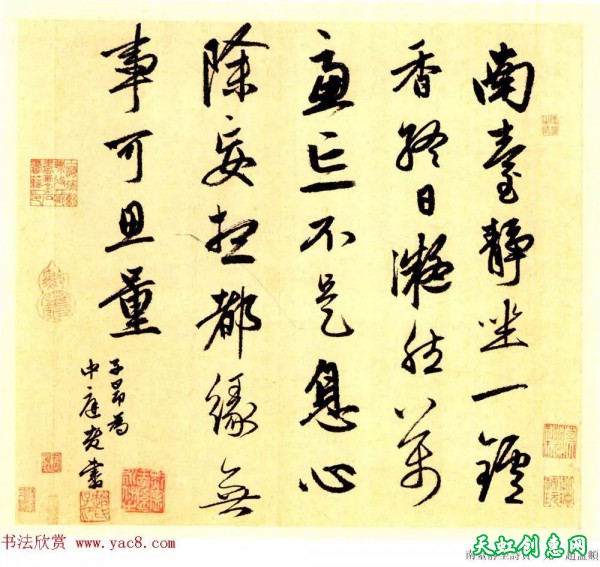 南臺靜坐一鑪
香終日凝然萬
慮忘不是息心
除妄想都緣無
事可思量
子昂為
中庭書
书法欣赏 www.yac8.com
天虹创惠网
南臺靜坐詩頁 趙孟頫